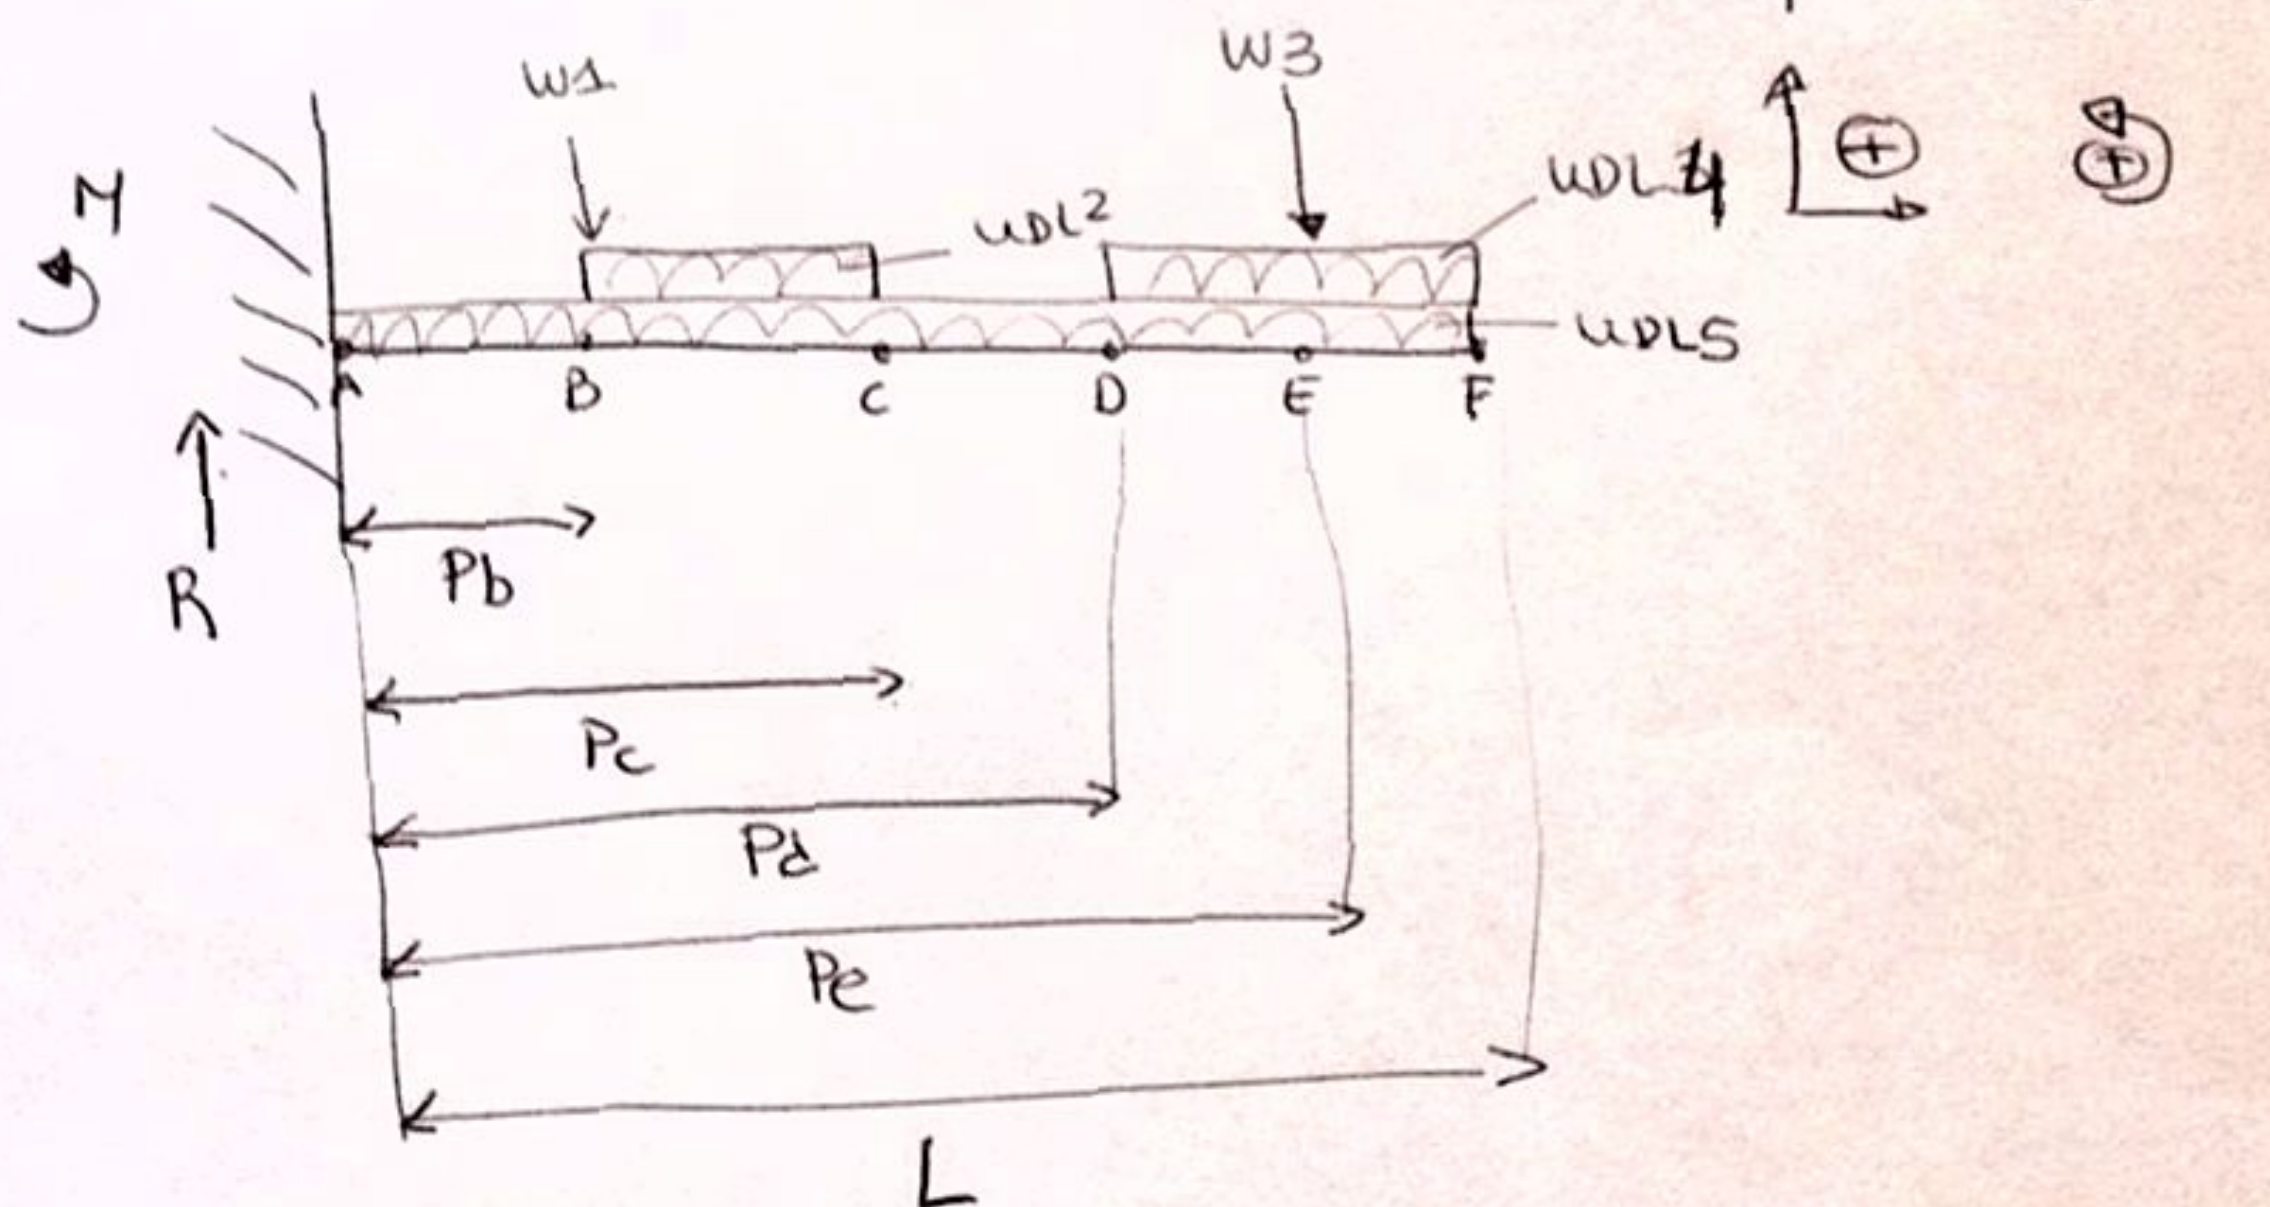 W1
W3
UDL2
UDL4
M
UDL5
A B C D E F
Pb
R
Pc
Pd
Pe
L